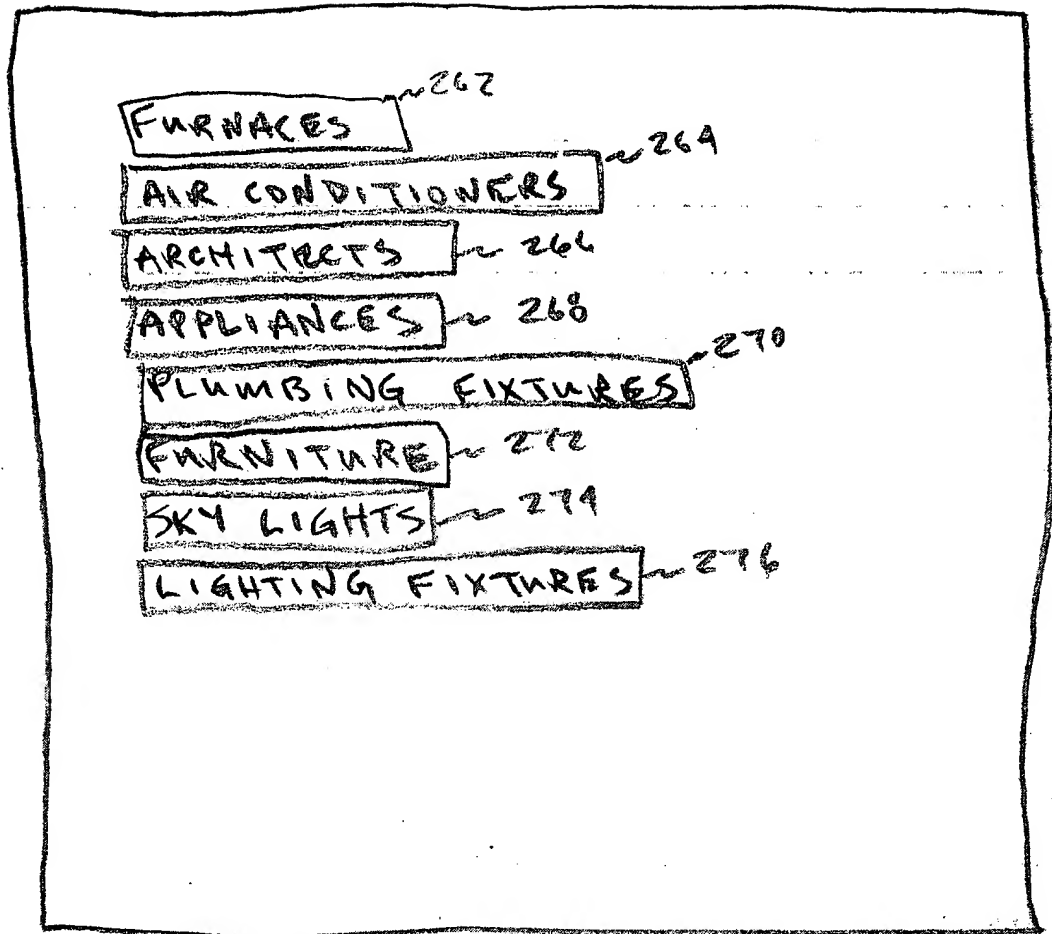 FURNACES 262
AIR CONDITIONERS 264
ARCHITECTS 266
APPLIANCES 268
PLUMBING FIXTURES 270
FURNITURE 272
SKY LIGHTS 274
LIGHTING FIXTURES 276